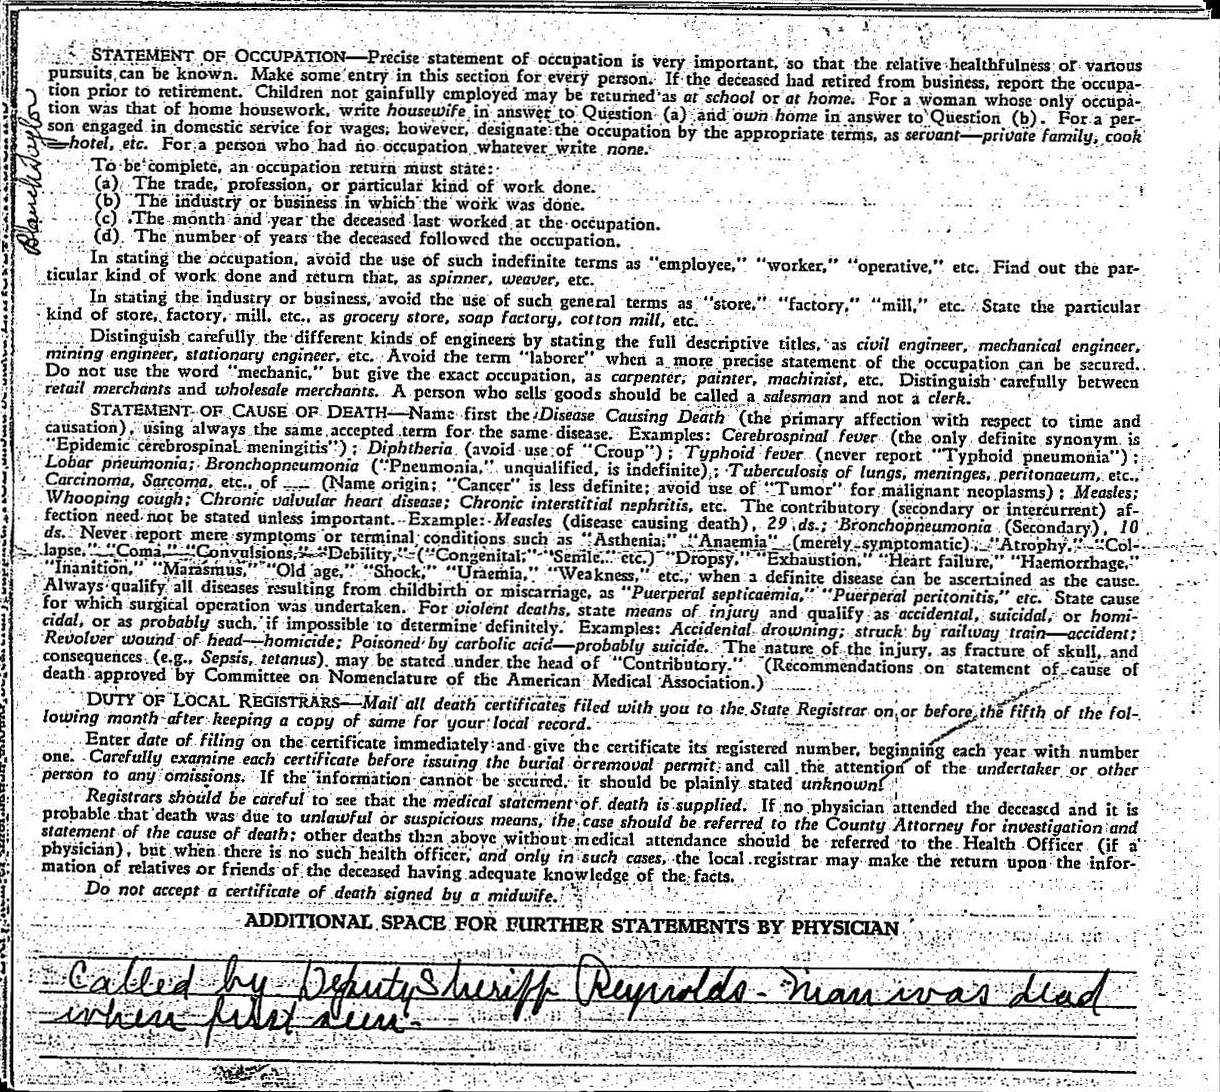 STATEMENT OF OCCUPATION—Precise statement of occupation is very important, so that the relative healthfulness of various
pursuits can be known. Make some entry in this section for every person. If the deceased had retired from business, report the occupa-
tion prior to retirement. Children not gainfully employed may be returned as at school or at home. For a woman whose only occupa-
tion was that of home housework, write housewife in answer to Question (a) and own home in answer to Question (b). For a per-
son engaged in domestic service for wages, however, designate the occupation by the appropriate terms, as servant—private family, cook
—hotel, etc. For a person who had no occupation whatever write none.
To be complete, an occupation return must state:
(a) The trade, profession, or particular kind of work done.
(b) The industry or business in which the work was done.
(c) The month and year the deceased last worked at the occupation.
(d) The number of years the deceased followed the occupation.
In stating the occupation, avoid the use of such indefinite terms as "employee," "worker," "operative," etc. Find out the par-
ticular kind of work done and return that, as spinner, weaver, etc.
In stating the industry or business, avoid the use of such general terms as "store," "factory," "mill," etc. State the particular
kind of store, factory, mill, etc., as grocery store, soap factory, cotton mill, etc.
Distinguish carefully the different kinds of engineers by stating the full descriptive titles, as civil engineer, mechanical engineer,
mining engineer, stationary engineer, etc. Avoid the term "laborer" when a more precise statement of the occupation can be secured.
Do not use the word "mechanic," but give the exact occupation, as carpenter, painter, machinist, etc. Distinguish carefully between
retail merchants and wholesale merchants. A person who sells goods should be called a salesman and not a clerk.
STATEMENT OF CAUSE OF DEATH—Name first the Disease Causing Death (the primary affection with respect to time and
causation), using always the same accepted term for the same disease. Examples: Cerebrospinal fever (the only definite synonym is
"Epidemic cerebrospinal meningitis"); Diphtheria (avoid use of "Croup"); Typhoid fever (never report "Typhoid pneumonia");
Lobar pneumonia; Bronchopneumonia ("Pneumonia," unqualified, is indefinite); Tuberculosis of lungs, meninges, peritonaeum, etc.,
Carcinoma, Sarcoma, etc., of ___ (Name origin; "Cancer" is less definite; avoid use of "Tumor" for malignant neoplasms); Measles;
Whooping cough; Chronic valvular heart disease; Chronic interstitial nephritis, etc. The contributory (secondary or intercurrent) af-
fection need not be stated unless important. Example: Measles (disease causing death), 29 ds.; Bronchopneumonia (Secondary), 10
ds. Never report mere symptoms or terminal conditions such as "Asthenia," "Anaemia" (merely symptomatic), "Atrophy," "Col-
lapse," "Coma," "Convulsions," "Debility," ("Congenital," "Senile," etc.) "Dropsy," "Exhaustion," "Heart failure," "Haemorrhage,"
"Inanition," "Marasmus," "Old age," "Shock," "Uraemia," "Weakness," etc., when a definite disease can be ascertained as the cause.
Always qualify all diseases resulting from childbirth or miscarriage, as "Puerperal septicaemia," "Puerperal peritonitis," etc. State cause
for which surgical operation was undertaken. For violent deaths, state means of injury and qualify as accidental, suicidal, or homi-
cidal, or as probably such, if impossible to determine definitely. Examples: Accidental drowning; struck by railway train—accident;
Revolver wound of head—homicide; Poisoned by carbolic acid—probably suicide. The nature of the injury, as fracture of skull, and
consequences (e.g., Sepsis, tetanus) may be stated under the head of "Contributory." (Recommendations on statement of cause of
death approved by Committee on Nomenclature of the American Medical Association.)
DUTY OF LOCAL REGISTRARS—Mail all death certificates filed with you to the State Registrar on or before the fifth of the fol-
lowing month after keeping a copy of same for your local record.
Enter date of filing on the certificate immediately and give the certificate its registered number, beginning each year with number
one. Carefully examine each certificate before issuing the burial or removal permit and call the attention of the undertaker or other
person to any omissions. If the information cannot be secured, it should be plainly stated unknown.
Registrars should be careful to see that the medical statement of death is supplied. If no physician attended the deceased and it is
probable that death was due to unlawful or suspicious means, the case should be referred to the County Attorney for investigation and
statement of the cause of death; other deaths than above without medical attendance should be referred to the Health Officer (if a
physician), but when there is no such health officer, and only in such cases, the local registrar may make the return upon the infor-
mation of relatives or friends of the deceased having adequate knowledge of the facts.
Do not accept a certificate of death signed by a midwife.
ADDITIONAL SPACE FOR FURTHER STATEMENTS BY PHYSICIAN
Called by Deputy Sheriff Reynolds - man was dead
when first seen.
Blanche Taylor